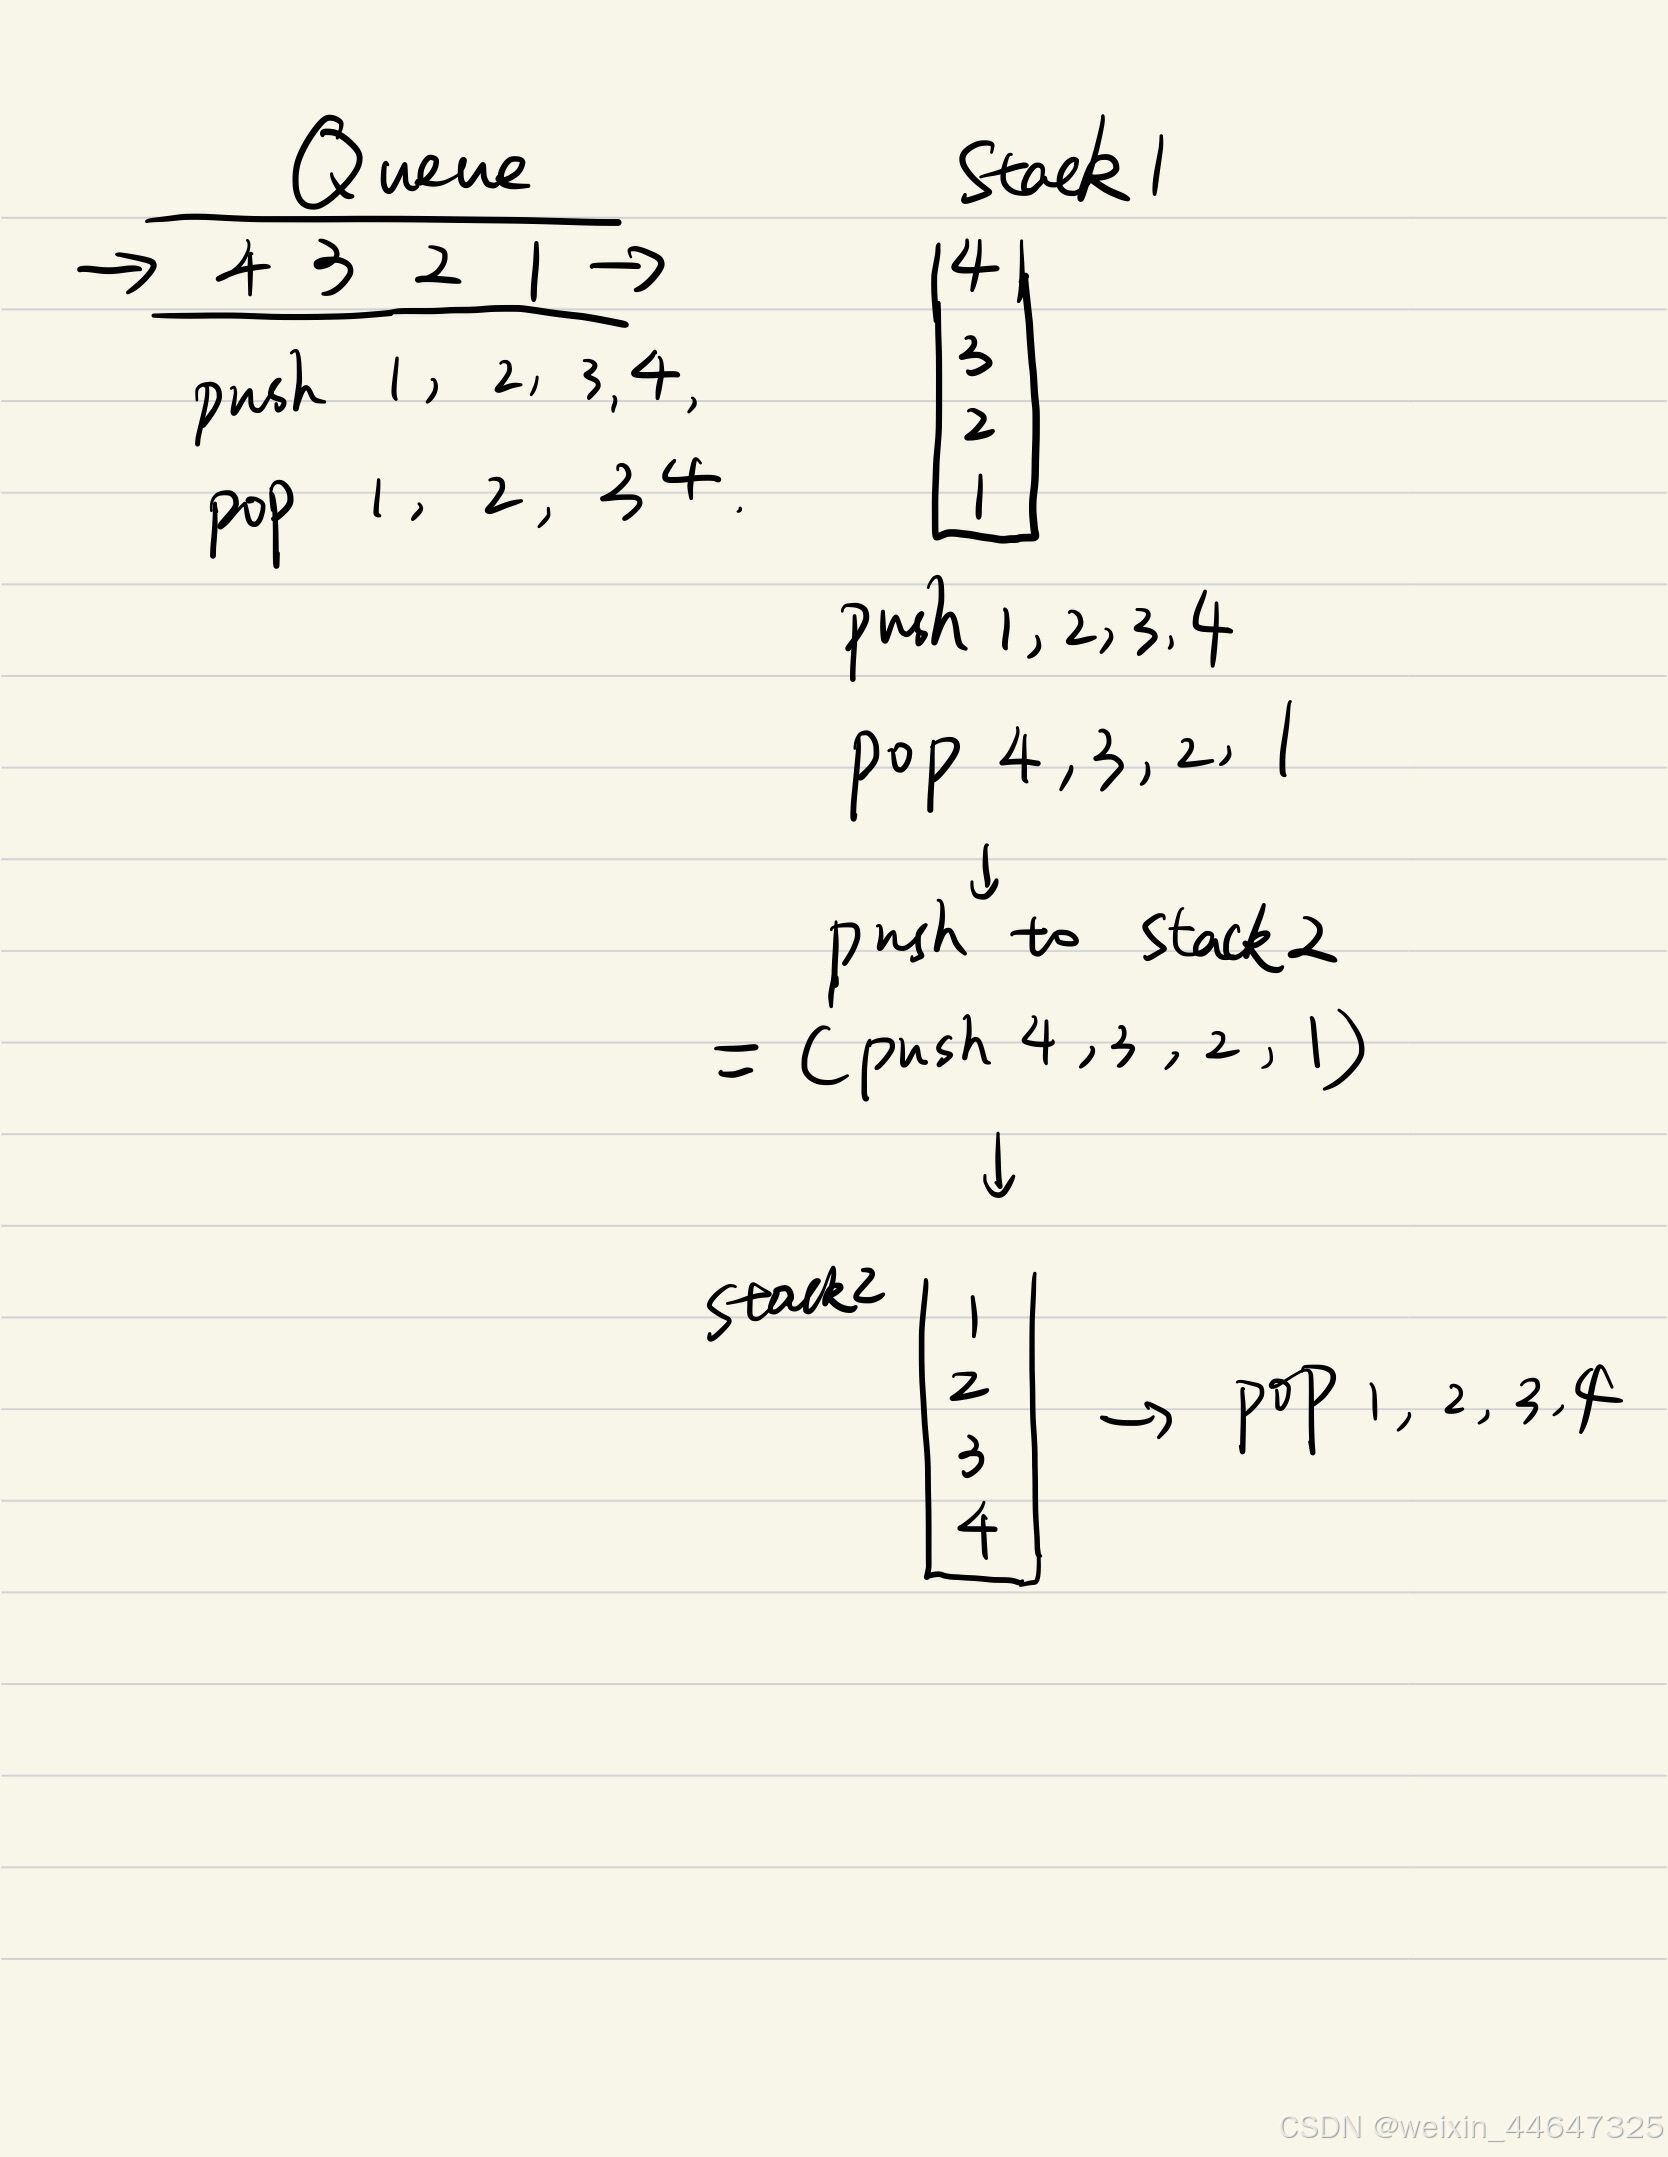 Queue
→ 4 3 2 1 →
push 1, 2, 3, 4,
pop 1, 2, 3 4.
Stack 1
4
3
2
1
push 1, 2, 3, 4
pop 4, 3, 2, 1
↓
push to stack 2
= (push 4, 3, 2, 1)
↓
stack 2
1
2
3
4
→ pop 1, 2, 3, 4
CSDN @weixin_44647325